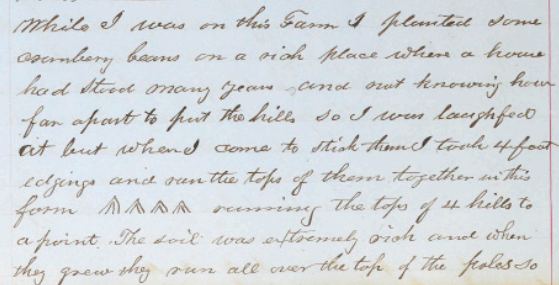 While I was on this Farm I planted some
cramberry beans on a rich place where a house
had stood many years and not knowing how
far apart to put the hills so I was laughfed
at but when I come to stick them I took 4 foot
edgings and run the tops of them together in this
form running the tops of 4 hills to
a point. The soil was extremely rich and when
they grew they run all over the top of the poles so